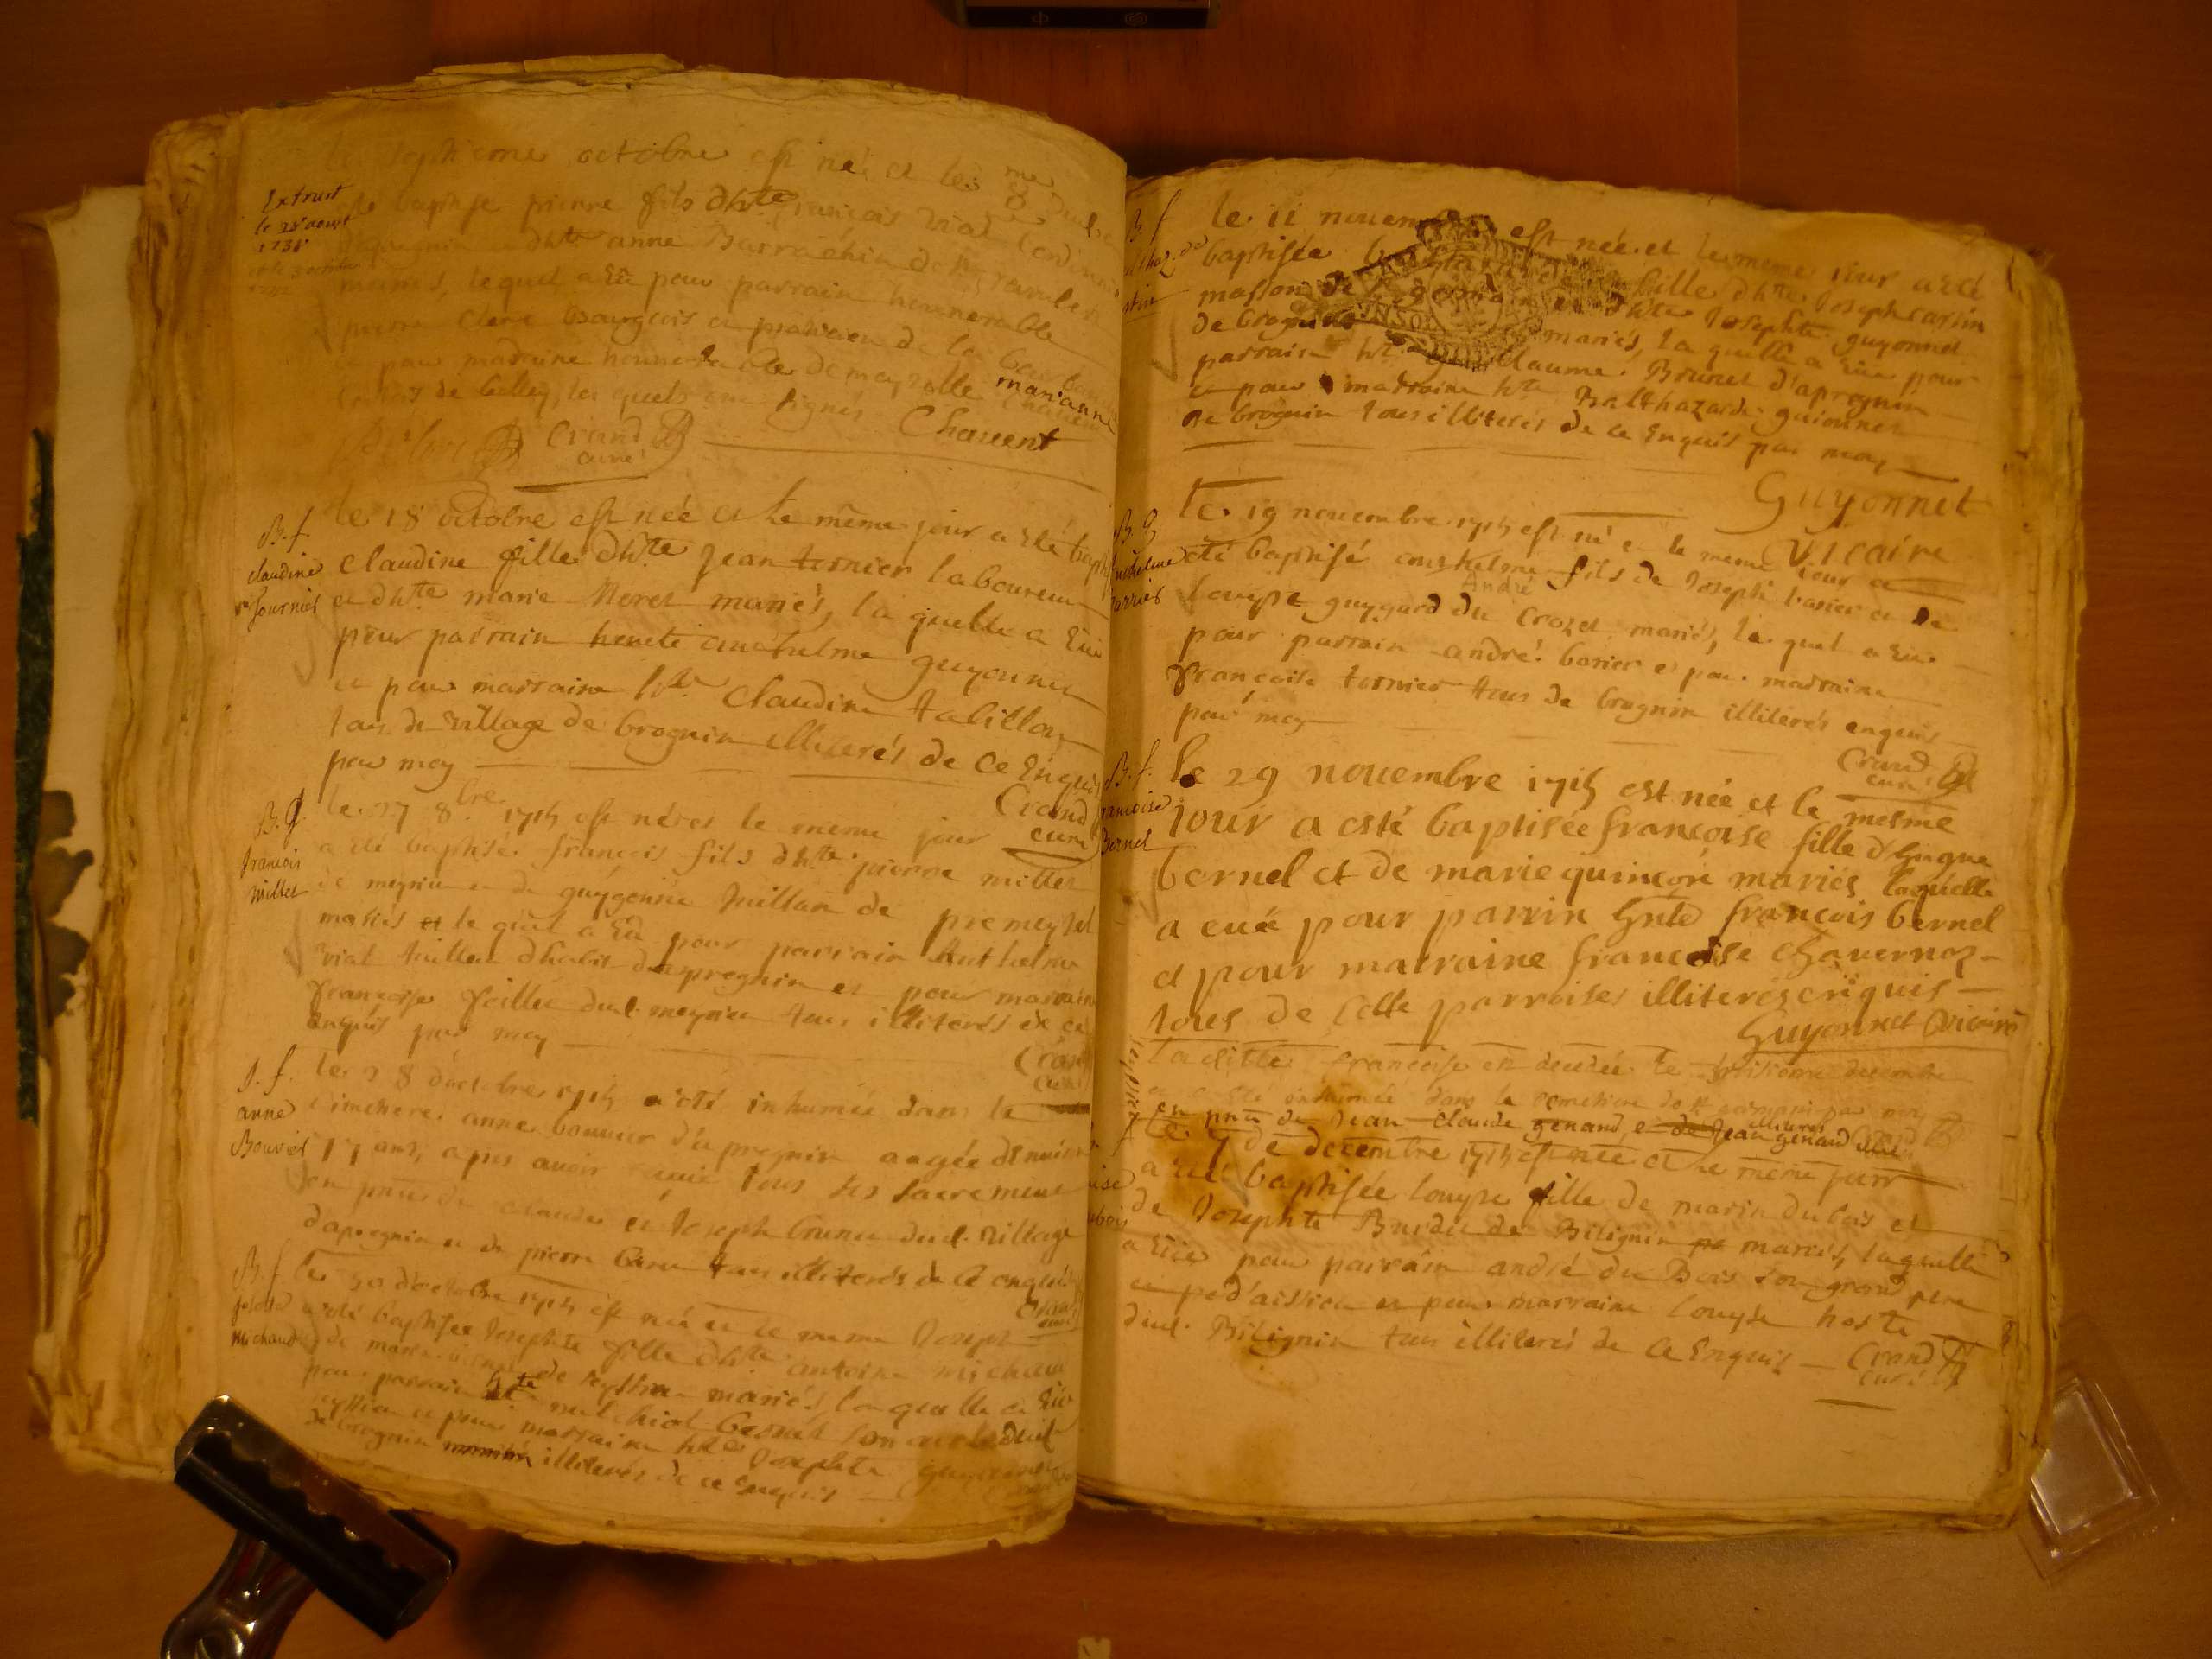 Extrait
le 28 aoust
1738
le septieme octobre est né et le 8me dud.
esté baptisé pierre fils dhte françois viat
anne Barrachin
mariés, lequel a eu pour parrain honnorable
pierre Bourgeois et praticien de
et pour madraine honnorable demoyselle marianne
de belley, les quels ont signés Chauent
Crand
curé
B. f.
claudine
fournier
le 18 octobre est née et le même jour a eté bapt
claudine fille dhte Jean tornier laboureur
et dhte marie Moret mariés, la quelle a Eüe
pour parrain hnete anthelme guyonnet
et pour marraine hte claudine tabillon
tous du village de brognin illiterés de ce Enquis
par moy
Crand
curé
B. G.
francois
millet
le 27 8bre 1715 est né et le meme jour
a eté baptisé françois fils dhte pierre millet
de meyrieu et de guygonne millan de premeyzel
mariés et le quel a Eu pour parrain Anthelme
viat tailleur dhabit d'apregnin et pour marraine
françoise feillié dud. meyrieu tous illiterés de ce
Enquis par moy
Crand
curé
S. f.
anne
Bouvier
le 28 doctobre 1715 a eté inhumée dans le
cimetiere anne bouvier d'apregnin aagée denviron
17 ans, apres avoir reçue tous ses sacremens
en pnce de claude et Joseph brunet dud. village
dapregnin et de pierre tous illiterés de ce enquis
Crand
curé
B. f.
Josette
Michaud
le 30 doctobre 1715 est née et le meme Jour
a eté baptisée Josephte fille dhte antoine michaud
de marie de seyssieu mariés, laquelle a Eüe
pour parrain hte melchiot bernel son oncle dud.
seyssieu et pour marraine hte Josephte guyonnet
de brognin illiterés de ce Enquis
B. f
le 11 nouembre est née et le meme iour a eté
baptisée fille dhte Joseph cartin
masson de et dhte Josephte guyonnet
de brognin mariés, la quelle a Eüe pour
parrain hte guillaume Brunet d'apregnin
et pour marraine hte Balthazarde guionnet
de brognin tous illiterés de ce Enquis par moy
Guyonnet
Vicaire
B. G
anthelme
barrier
le 19 nouembre 1715 est né et le meme iour a
eté baptisé anthelme fils de Joseph barier et de
André
louyse guygard du crozet mariés, le quel a Eu
pour parrain andré barier et pour madraine
françoise tornier tous de brognin illiterés enquis
par moy
Crand
curé
B. f.
francoise
Bernel
le 29 nouembre 1715 est née et le mesme
iour a esté baptisée françoise fille d'hugue
bernel et de marie quinçon mariés laquelle
a euë pour parrin hnte françois bernel
et pour marraine françoise chauernoz
tous de cette parroises illiterés enquis
Guyonnet vicaire
la ditte françoise est decedée le decembre
et a eté inhumée dans le cemetiere de st germain par moy
en pnce de Jean claude genand, et de Jean genand illiterés
Sepulture
le 7 de decembre 1715 est née et le meme jour
a eté baptisée louyse fille de marin dubois et
de Josephte Burdet de Bilignin mariés, laquelle
a Eüe pour parrain andré du Bois son grand pere
et pour marraine louyse hoste
dud. Bilignin tous illiterés de ce Enquis
Crand
curé